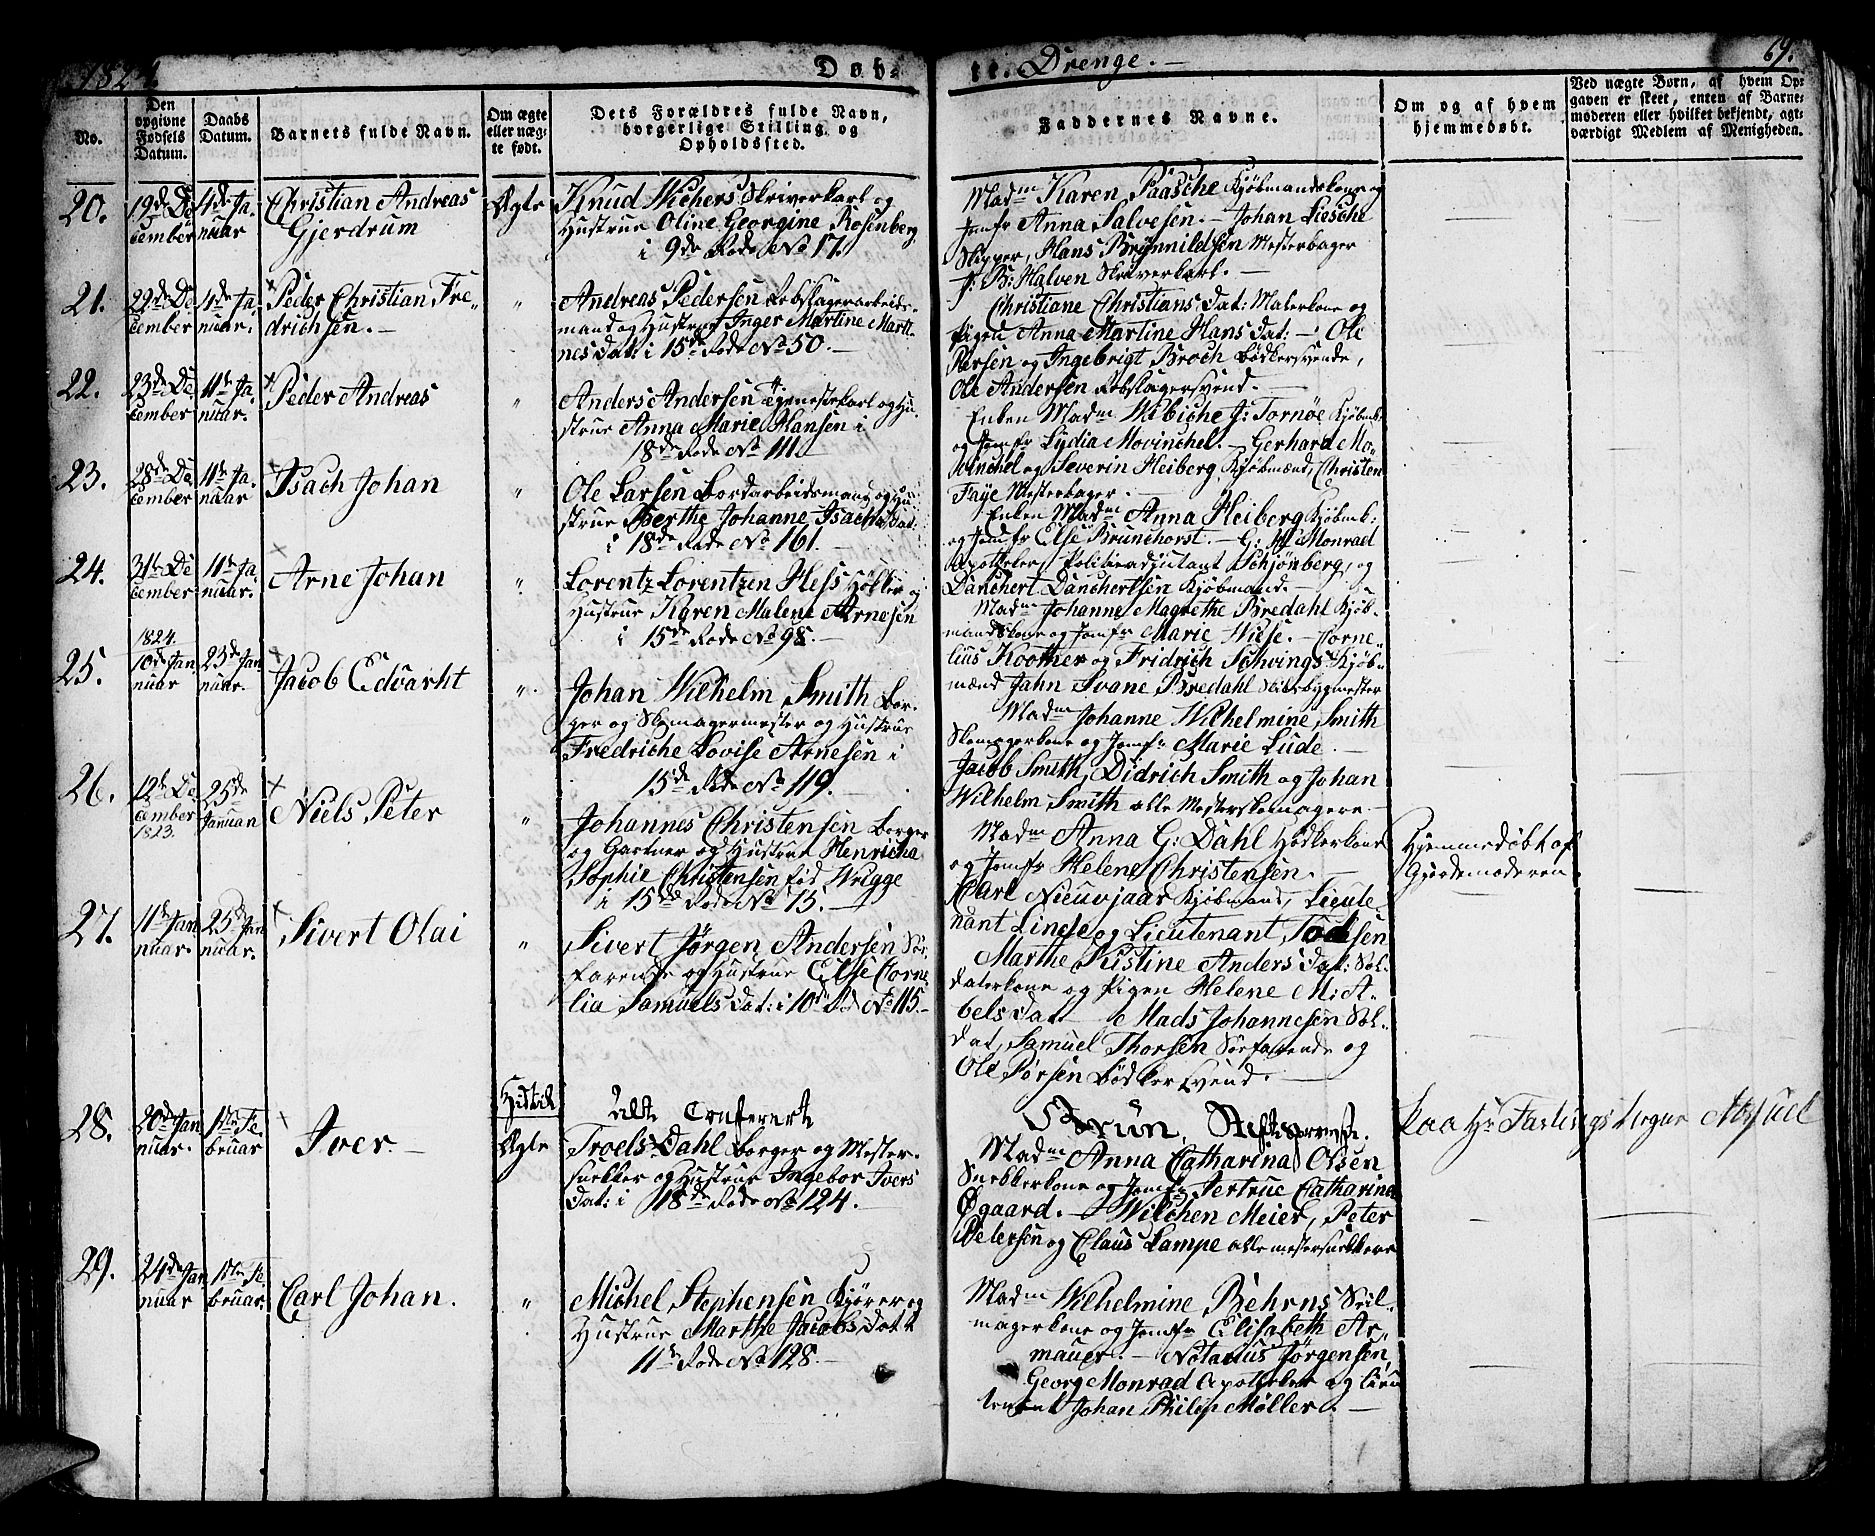 1824.
Døb-
te. Drenge. —
69.
No.
Den opgivne Fødsels Datum.
Daabs Datum.
Barnets fulde Navn.
Om ægte eller uæg-te født.
Dets Forældres fulde Navn, borgerlige Stilling og Opholdssted.
Faddernes Navne.
Om og af hvem hjemmedøbt.
Ved uægte Børn, af hvem Op-
gaven er skeet, enten af Barne-
moderen eller hvilket bekjendt, agt-
værdigt Medlem af Menigheden.
20.
19de De
cember
4de Ja
nuar
Christian Andreas
Gjerdrum
Ægte
Knud Wichers Skriverkarl og
Hustrue Oline Georgine Rosenberg
i 9de Rode No 17.
Madm Karen Paasche Kjøbmandskone og
Jomfr Anna Salvesen. — Johan Liesche
Skipper, Hans Brynnildsen Mesterbager
J: B: Halven Skriverkarl. —
21.
29de De
cember
4de Ja
nuar.
Peder Christian Fre-
drichsen. —
"
Andreas Pedersen Rebslagerarbeids-
mand og Hustrue Inger Martine Marti-
nes Dat: i 15de Rode No 50. —
Christiane Christians Dat: Malerkone og
Pigen Anna Martine Hans Dat: — Ole
Persen og Ingebrigt Broch Bødkersvende,
Ole Andersen Rebslagersvend. —
22.
23de De
cember
11te Ja
nuar.
Peder Andreas
"
Anders Andersen Tjenestekarl og Hu-
strue Anna Marie Hansen i
18de Rode No 111.
Enken Madm Wibiche J: Tornøe Kjøbmk:
og Jomfr Lydia Movinchel. — Gerhard Mo-
vinchel og Severin Heiberg Kjøbmænd, Christen
Faye Mesterbager. —
23.
28de De
cember
11te Ja
nuar
Isach Johan
"
Ole Larsen Bordarbeidsmand og Hu
strue Berthe Johanne Isachs Dat:
i 18de Rode No 161. —
Enken Madm Anna Heiberg Kjøbmk:
og Jomfr Else Brunchorst. — G: Monrad
Apotheker, Politieadjutant Schjønberg, og
Danchert Danchertsen Kjøbmand. —
24.
31te De
cember
11te Ja
nuar.
Arne Johan
"
Lorentz Lorentzen Hess Høkker og
Hustrue Karen Malene Arnesen
i 15de Rode No 98. —
Madm Johanne Magrethe Bredahl Kjøb-
mandskone og Jomfr Marie Wiese. — Corne-
lius Koother og Fridrich Schvings Kjøb-
mænd Jahn Svane Bredahl Skibsbygmester
25.
1824.
10de Jan
nuar
25de Jan
nuar.
Jacob Edvarht
"
Johan Wilhelm Smith Bor-
ger og Skomagermester og Hustrue
Fredriche Lovise Arnesen i
15de Rode No 119. —
Madm Johanne Wilhelmine Smith
Skomagerkone og Jomfr Marie Lude. —
Jacob Smith, Didrich Smith og Johan
Wilhelm Smith alle Mesterskomagere —
26.
12te De
cember
1823.
25de
Januari
Niels Peter
"
Johannes Christensen Borger
og Gartner og Hustrue Henricha
Sophie Christensen fød Wrigge
i 15de Rode No 15. —
Madm Anna G: Dahl Høkkerkone
og Jomfr Helene Christensen. —
Carl Nieuvjaar Kjøbmand, Lieute-
nant Linde og Lieutenant Todsen
Hjemmedøbt af
Gjordemoderen.
27.
11te Jan
nuar.
25de Jan
nuar.
Sivert Olai
"
Sivert Jørgen Andersen Søe
farende og Hustrue Else Corne
lia Samuels Dat: i 10de Rode No 115. —
Marthe Kistine Anders Dat: Sol-
daterkone og Pigen Helene M: A-
bels Dat — Mads Johannesen Sol-
dat, Samuel Thorsen Søefarende og
Ole Børsen Bødkersvend. —
28.
20de Jan
nuar.
1te Fe
bruar
Iver. —
Ægte
Troels Dahl Borger og Mester-
snekker og Hustrue Ingebor Ivers
Dat: i 18de Rode No 124. —
Brun, Stiftsprovst.
Madm Anna Catharina Olsen
Snekkerkone og Jomfr Jertrue Catharine
Øgaard. — Wilchen Meier, Peter
Petersen og Claus Lampe alle Mestersnekkere
29.
24de Jan
nuar
1te Fe
bruar.
Carl Johan.
"
Michel Stephensen Kjører og
Hustrue Marthe Jacobs Datt
11te Rode No 128. —
Madm Wilhelmine Behrns Seil-
magerkone og Jomfr Elisabeth Ar-
mauer. — Notarius Jørgensen,
George Monrad Apotheker og Lieu
tenent Johan Philip Møller. —